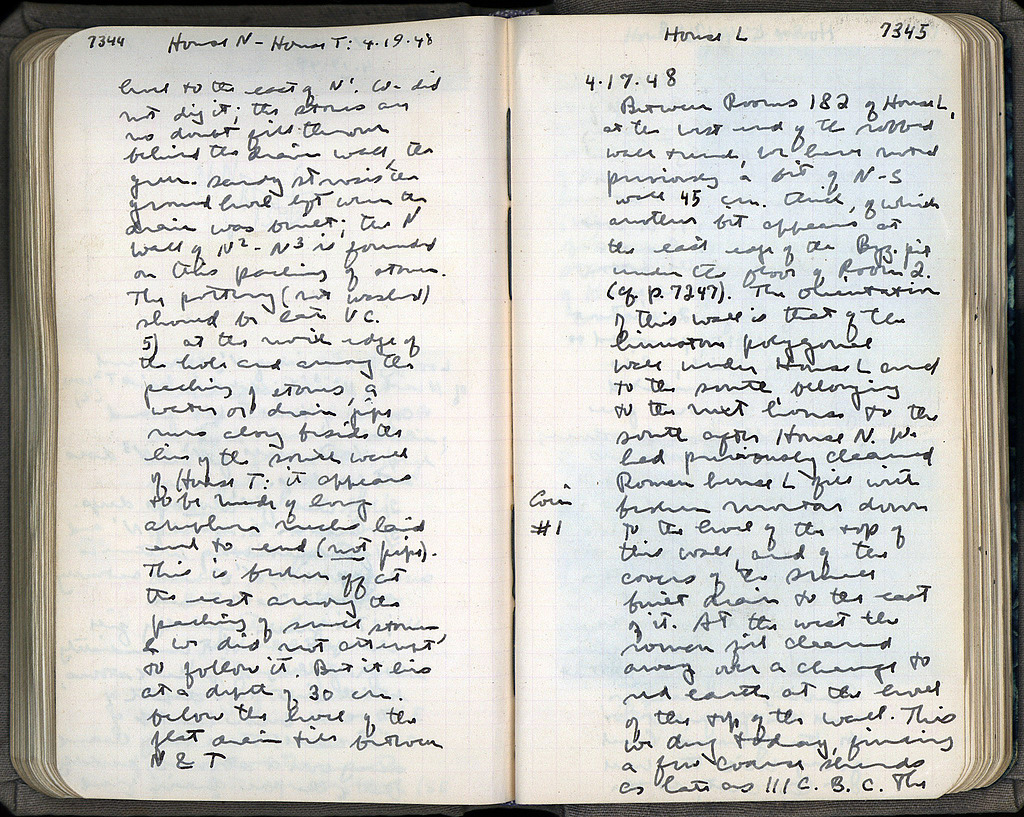 7344 House N - House T: 4.19.48
level to the east of N¹. We did
not dig it; the stones are
no doubt fill thrown
behind the drain wall, the
green sandy stratum is the
ground level left when the
drain was built; the N
wall of N² - N³ is founded
on this packing of stones.
The pottery (not washed)
should be late V C.
5) at the north edge of
the hole and among the
packing of stones, a
water or drain pipe
runs along beside the
line of the south wall
of House T: it appears
to be made of long
amphora necks laid
end to end (not pipes).
This is broken off at
the east among the
packing of small stones
& we did not attempt
to follow it. But it lies
at a depth of 30 cm.
below the level of the
flat drain tiles between
N & T
House L 7345
4.17.48
Between Rooms 1 & 2 of House L,
at the west end of the robbed
wall trench, we have noted
previously a bit of N-S
wall 45 cm. thick, of which
another bit appears at
the east edge of the Byz. pit
under the floor of Room 2.
(cf p. 7247). The orientation
of this wall is that of the
limestone polygonal
wall under House L and
to the south belonging
to the next house to the
south after House N. We
had previously cleaned
Roman house L fill with
broken mortar down
to the level of the top of
this wall, and of the
covers of the small
built drain to the east
of it. At the west the
Roman fill cleaned
away over a change to
red earth at the level
of the top of the wall. This
we dug today, finding
a few coarse sherds
as late as III C. B.C. The
Coin
#1